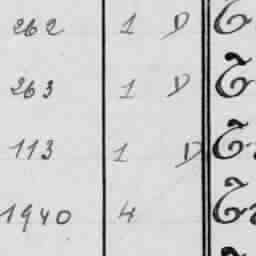 262 1 D
263 1 D
113 1 D
1940 4